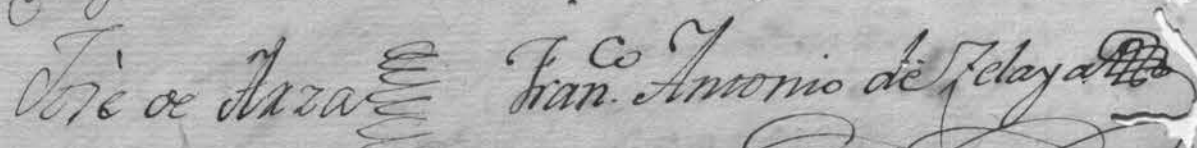 José de Arza Fran.co Antonio de Zelaya